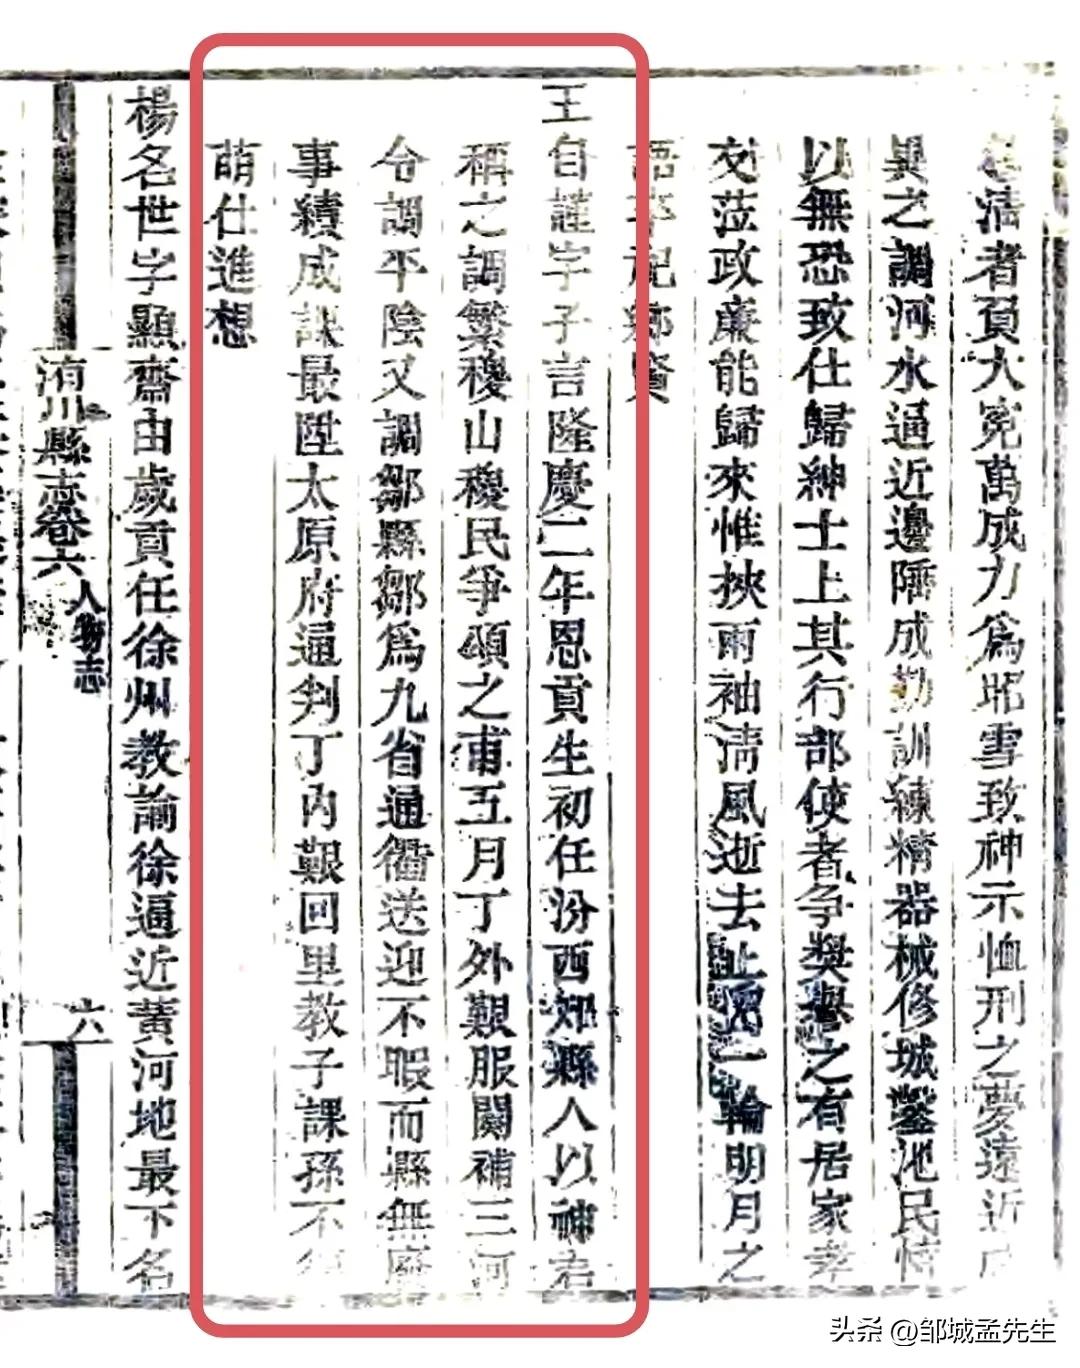 清者頁大冤萬成力爲昭雪致神示恤刑之夢遠近
異之調河水逼近邊陲成勤訓練精器械修城鑿池民恃
以無恐致仕歸紳士上其行部使者爭獎舉之有居家孝
友蒞政廉能歸來惟挾兩袖清風逝去一輪明月之
語卒祀鄉賢
王自謹字子言隆慶二年恩貢生初任汾西知縣人以神君
稱之調繁稷山稷民爭頌之甫五月丁外艱服闋補三河
令調平陰又調鄒縣鄒爲九省通衢送迎不暇而縣無廢
事績成課最陞太原府通判丁內艱回里教子課孫不復
萌仕進想
楊名世字顯齋由歲貢任徐州教諭徐逼近黃河地最下名
洧川縣志卷六
人物志
六
头条 @邹城孟先生